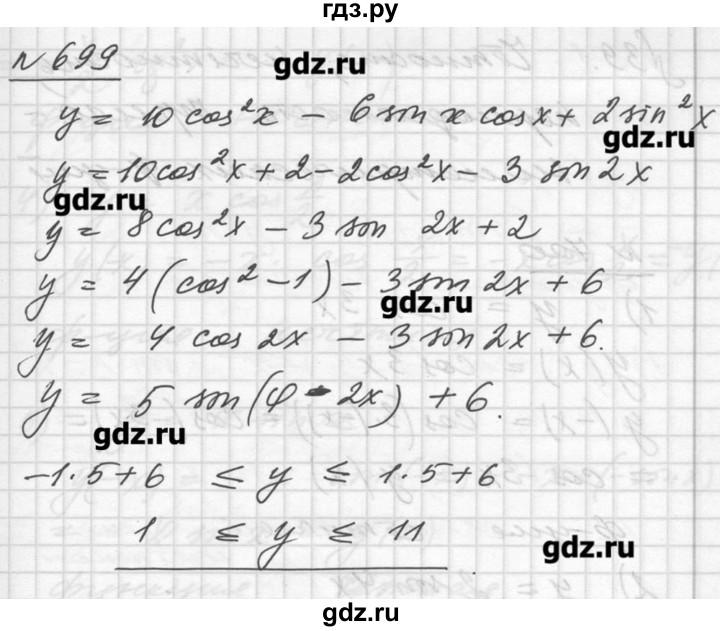 гдз.ру
№ 699
gdz.ru
y = 10 cos²x - 6 sin x cos x + 2 sin²x
gdz.ru
y = 10 cos²x + 2 - 2 cos²x - 3 sin 2x
gdz.ru
y = 8 cos²x - 3 sin 2x + 2
y = 4 (cos² - 1) - 3 sin 2x + 6
gdz.ru
y = 4 cos 2x - 3 sin 2x + 6.
y = 5 sin(φ - 2x) + 6.
gdz.ru
-1·5+6 ≤ y ≤ 1·5+6
1 ≤ y ≤ 11
gdz.ru
gdz.ru